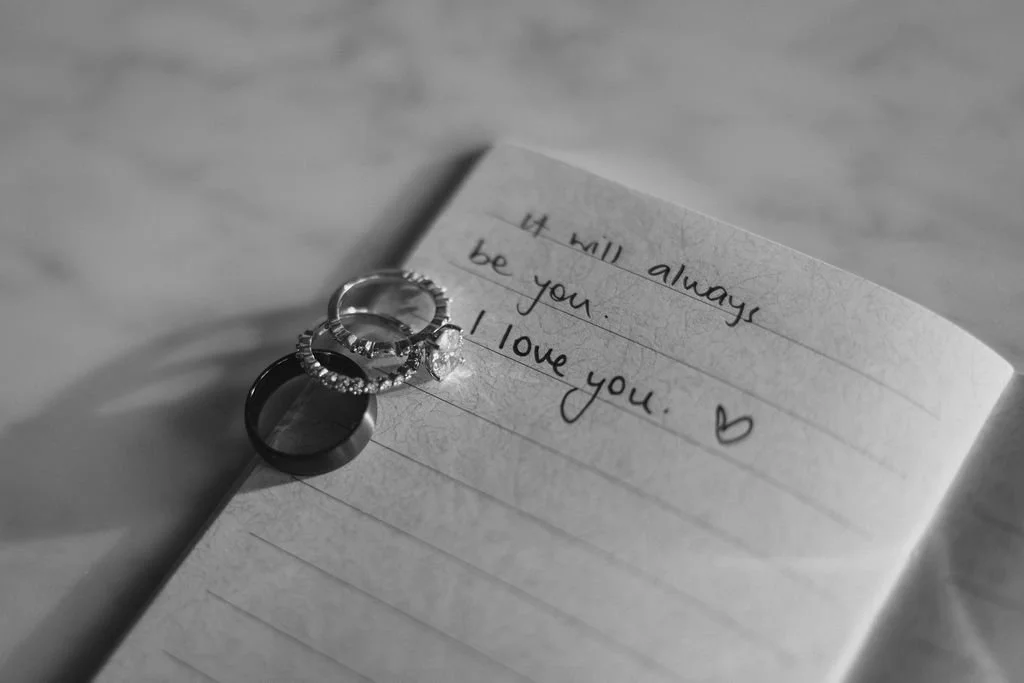 It will always
be you.
I love you. ♡